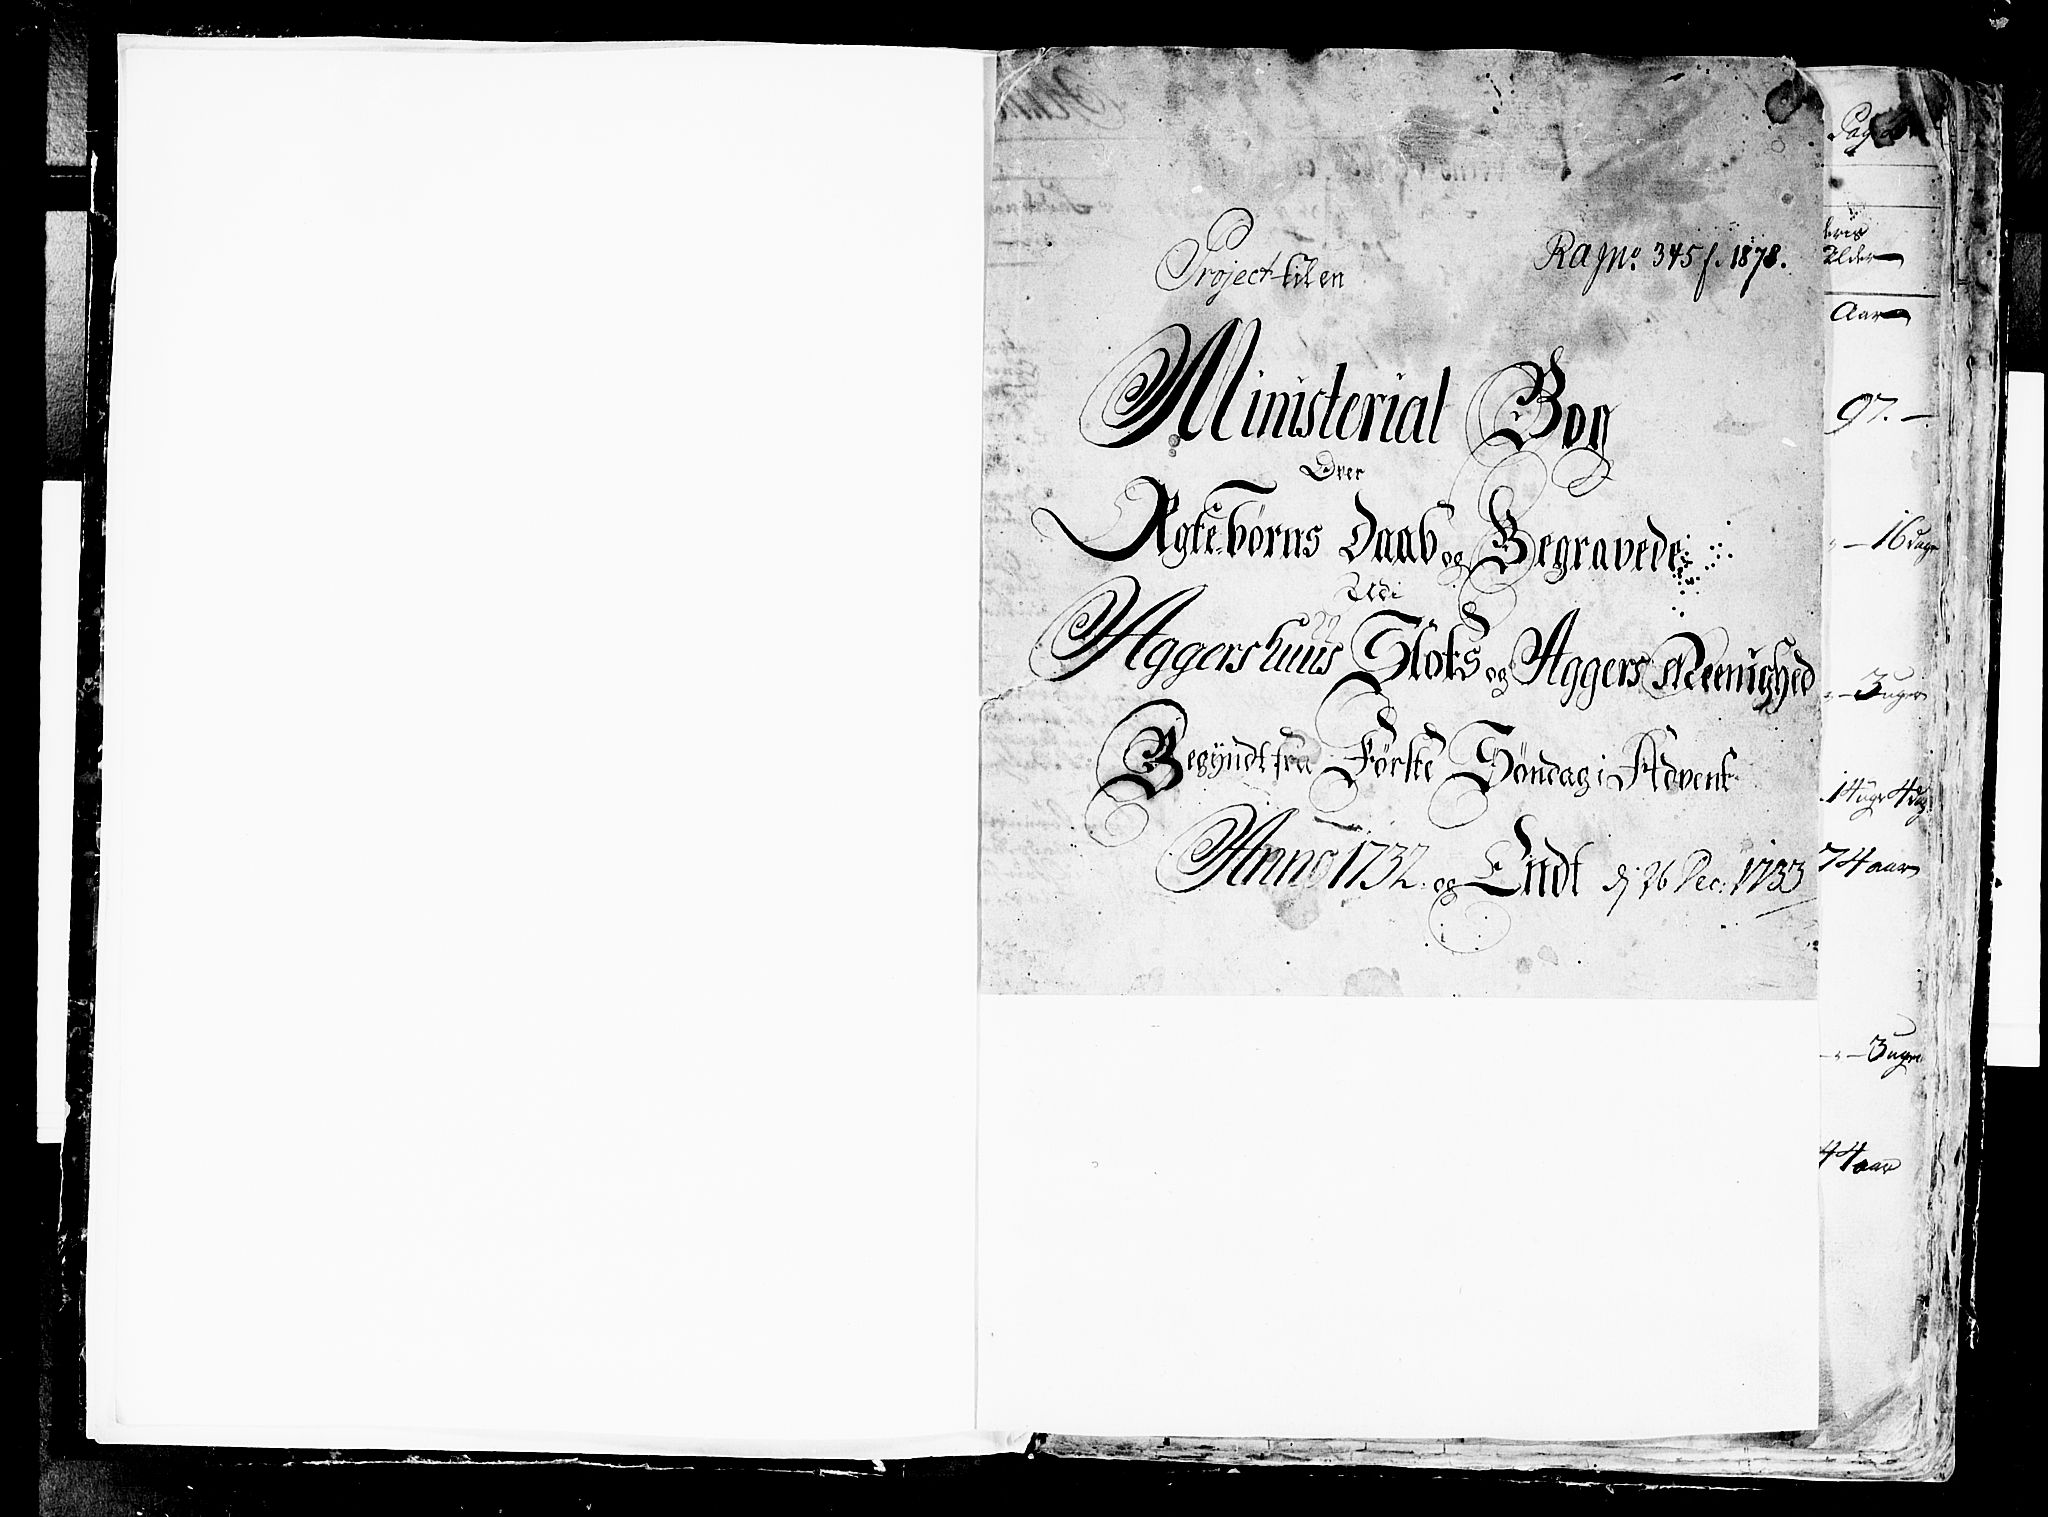 Project til en
RA No. 345 f. 1878.
Ministerial Bog
Over
Ægte-børns Daab og Begravede
Udi
Aggershuus Slots og Aggers Meenighed
Begyndt fra Første Søndag i Advent
Anno 1732. og Endt dj 26 Dec: 1733
Pag
Alder
Aar
97. -
- 16 dage
- 3 uger
14 ugr 4 dag
74 aar
- 3 uger
44 aar